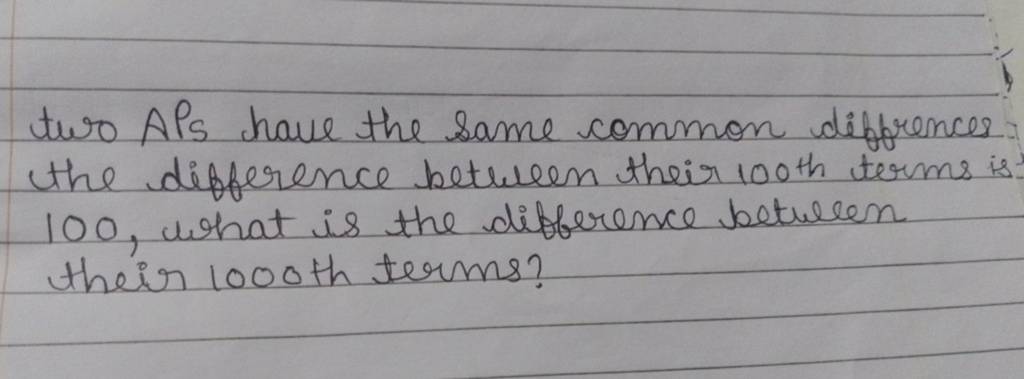 two APs have the same common diffrences
the difference between their 100th terms is
100, what is the difference between
their 1000th terms?